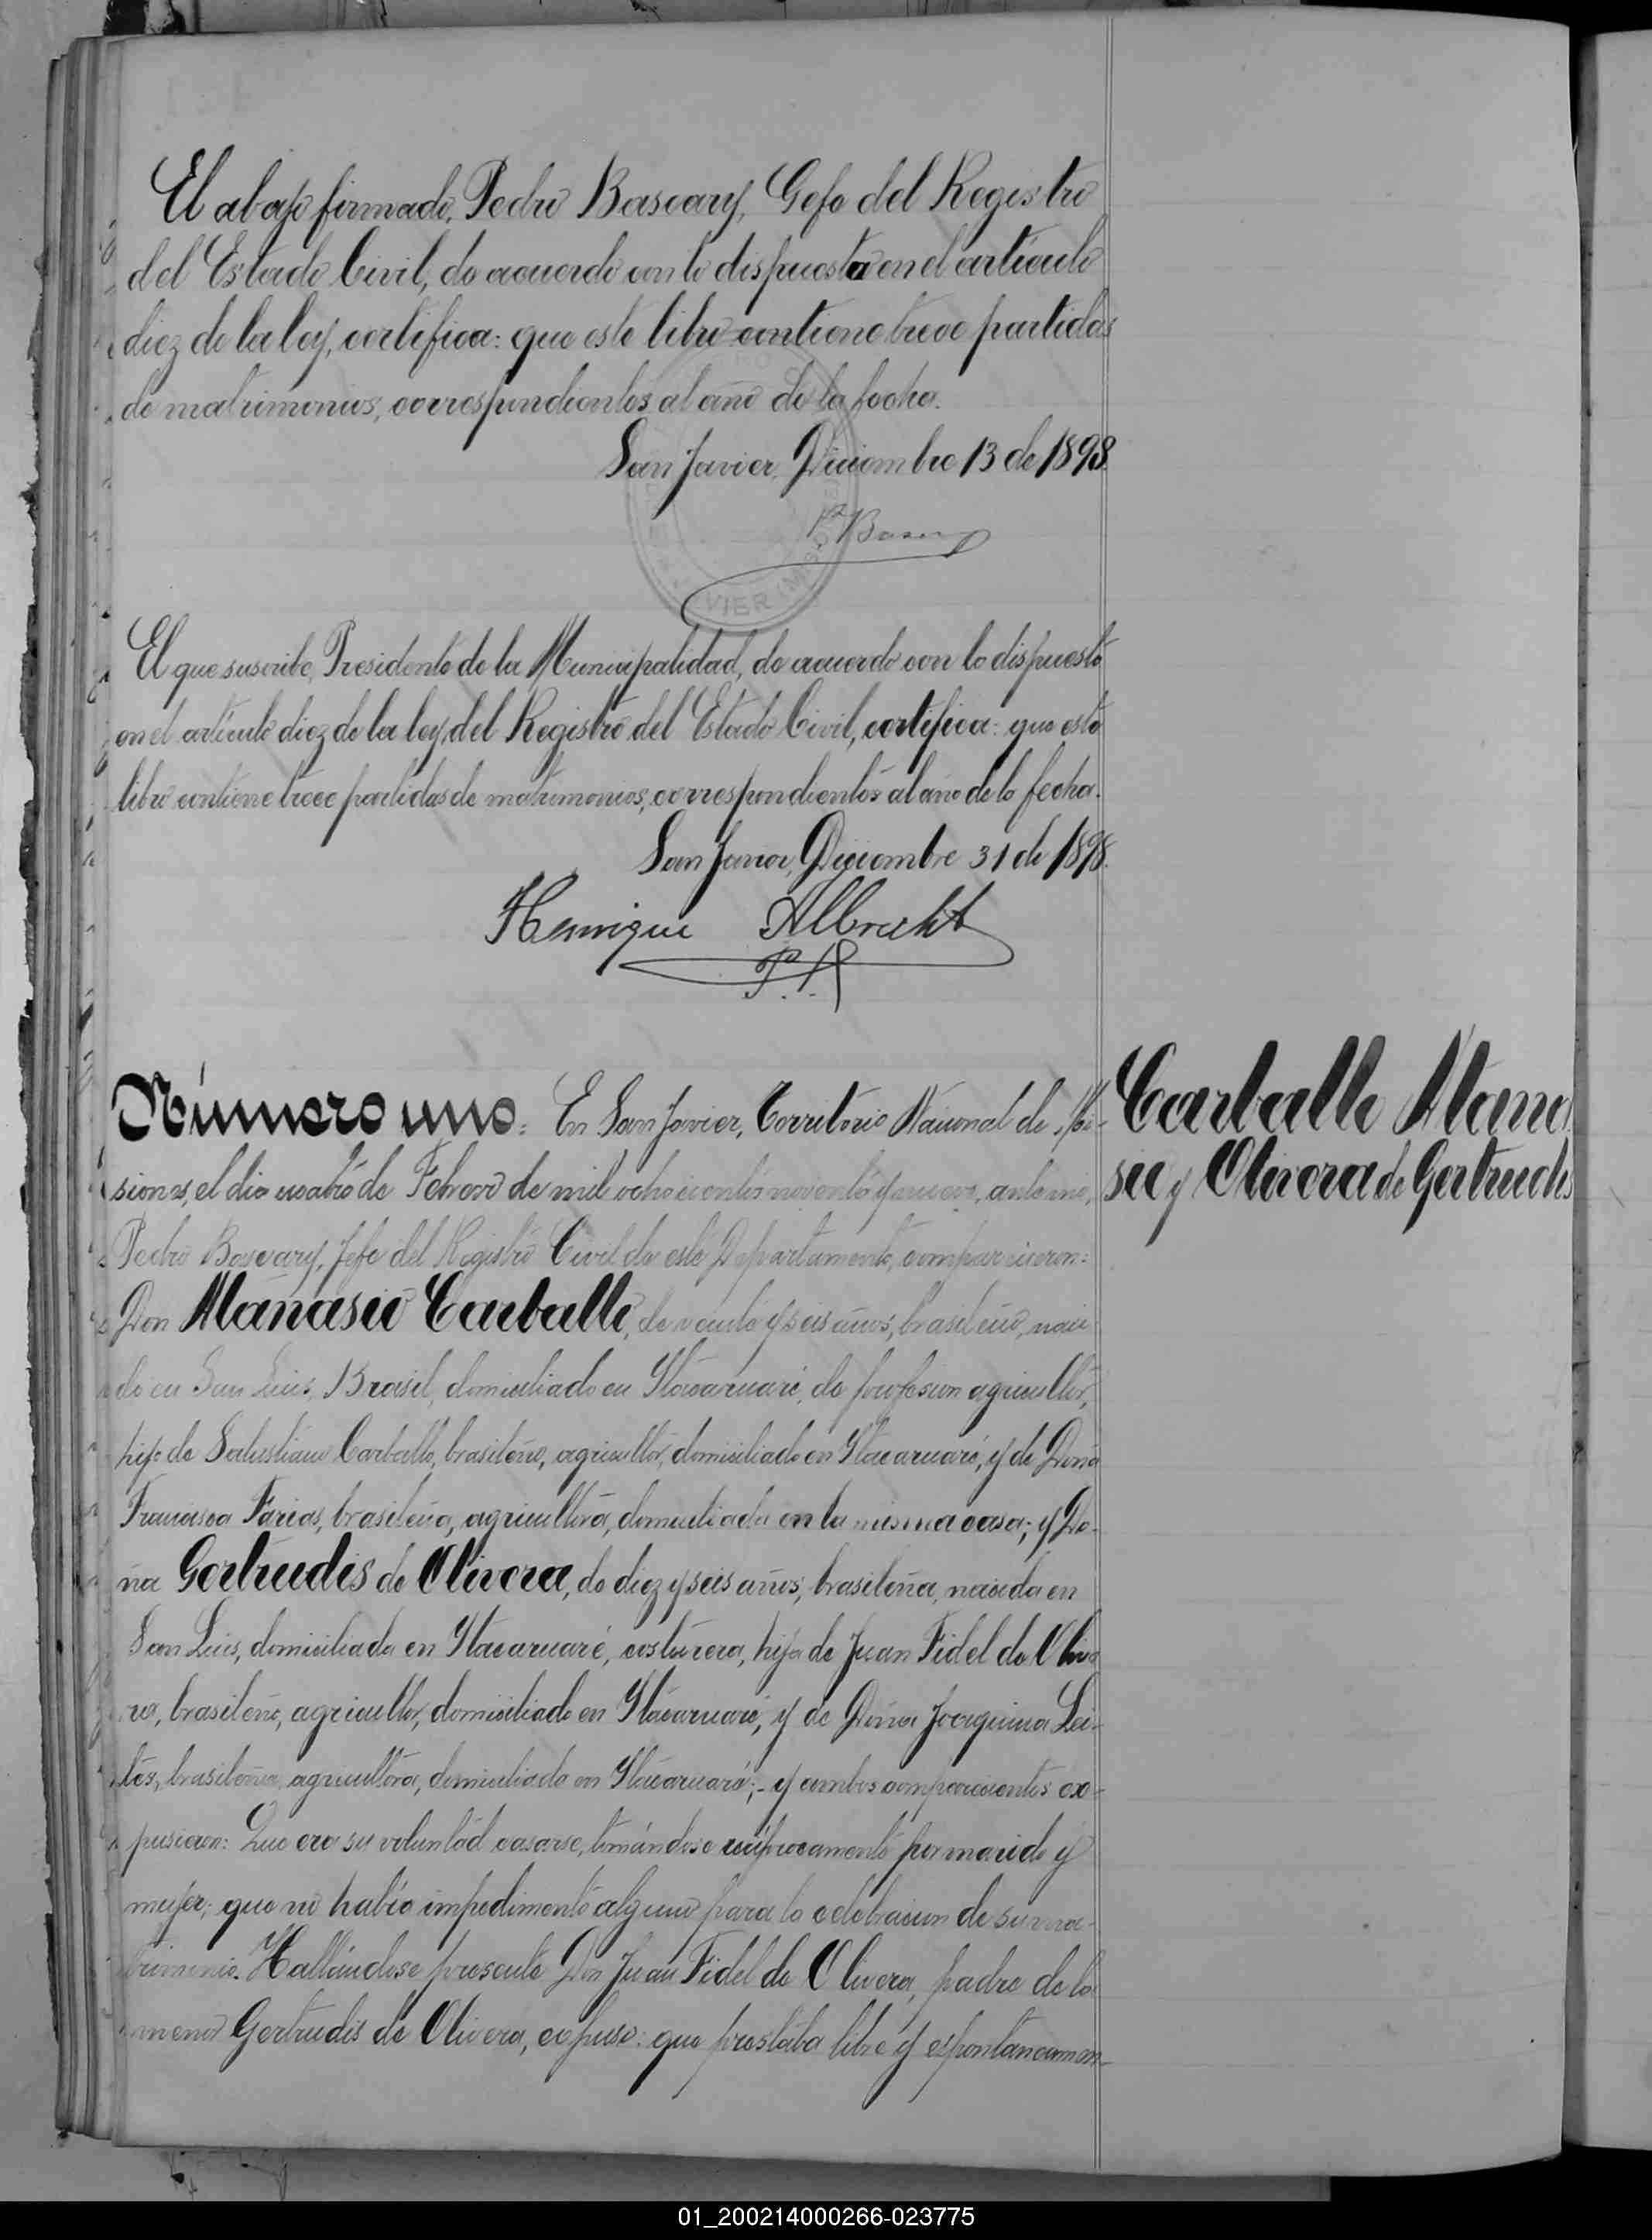 El abajo firmado, Pedro Bascary, Gefe del Registro
del Estado Civil, de acuerdo con lo dispuesto en el artículo
diez de la ley, certifica: que este libro contiene trece partidas
de matrimonios, correspondientes al año de la fecha.
San Javier, Diciembre 13 de 1898.
P. Bascary
VIER (MIS
El que suscribe, Presidente de la Municipalidad, de acuerdo con lo dispuesto
en el artículo diez de la ley, del Registro del Estado Civil, certifica: que este
libro contiene trece partidas de matrimonios, correspondientes al año de la fecha.
San Javier, Diciembre 31 de 1898.
Henrique Albrecht
P. I.
Número uno: En San Javier, Territorio Nacional de Mi-
siones, el dia cuatro de Febrero de mil ochocientos noventa y nueve, ante mi,
Pedro Bascary, Jefe del Registro Civil de este Departamento, comparecieron:
Don Atanasio Carballo, de veinte y seis años, brasileño, naci
do en San Luis, Brasil, domiciliado en Itacaruaré, de profesion agricultor,
hijo de Salustiano Carballo, brasileño, agricultor, domiciliado en Itacaruaré, y de Doña
Francisca Farias, brasileña, agricultora, domiciliada en la misma casa; y Do-
ña Gertrudis de Olivera, de diez y seis años, brasileña, nacida en
San Luis, domiciliada en Itacaruaré, costurera, hija de Juan Fidel de Olive
ra, brasileño, agricultor, domiciliado en Itacaruaré, y de Doña Joaquina Lei-
tes, brasileña, agricultora, domiciliada en Itacaruaré;- y ambos comparecientes ex-
pusieron: Que era su voluntad casarse, tomándose recíprocamente por marido y
mujer; que no había impedimento alguno para la celebracion de su ma-
trimonio. Hallándose presente Don Juan Fidel de Olivera, padre de la
menor Gertrudis de Olivera, expuso: que prestaba libre y espontaneamen-
Carballo Atana
sio y Olivera de Gertrudis
01_200214000266-023775